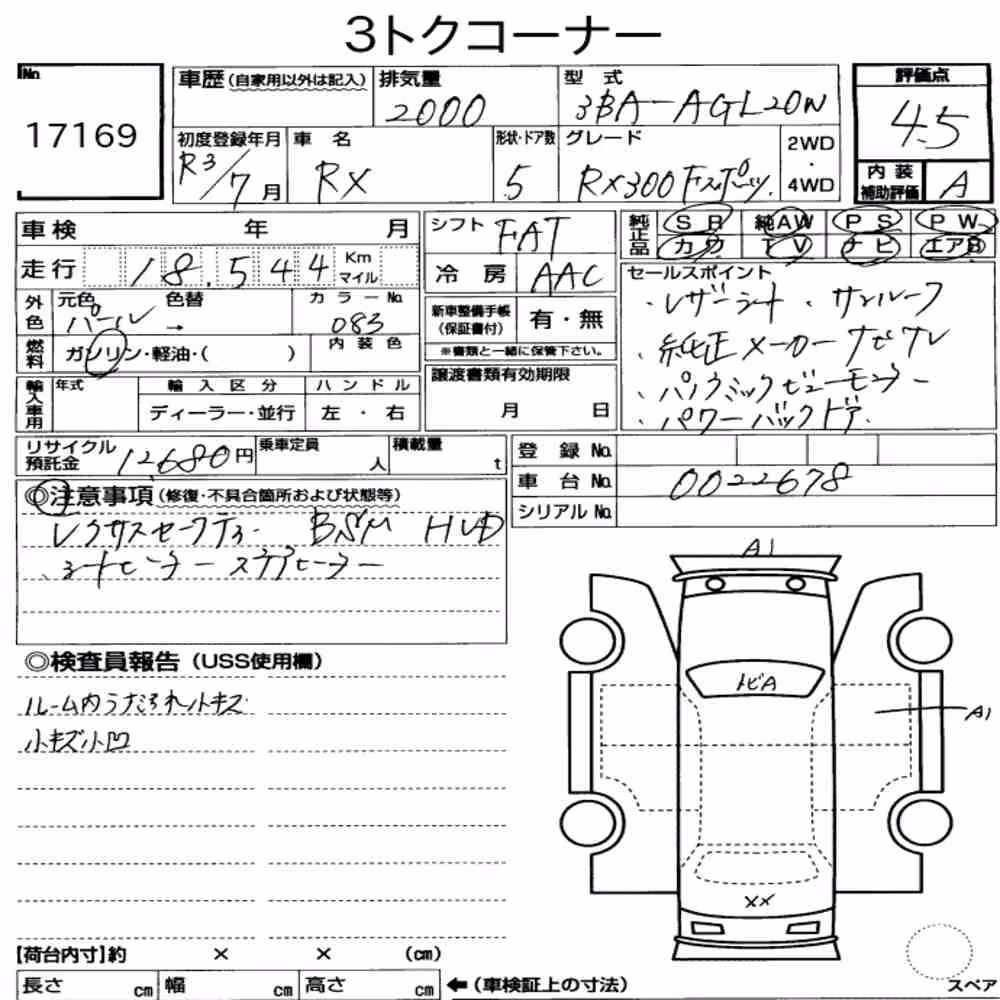 3トクコーナー
No.
17169
車歴(自家用以外は記入)
排気量
2000
型式
3BA-AGL20W
評価点
4.5
初度登録年月
R3/7月
車名
RX
形状・ドア数
5
グレード
RX300 Fスポーツ
2WD
・
4WD
内装
補助評価
A
車検 年 月
シフト
FAT
純正品
SR
純AW
PS
PW
カワ
TV
ナビ
エアB
走行 18,544 Km
マイル
冷房
AAC
セールスポイント
・レザーシート ・サンルーフ
・純正メーカーナビTV
・パノラミックビューモニター
・パワーバックドア
外色
元色
パール
色替
→
カラーNo.
083
新車整備手帳
(保証書付)
有・無
※書類と一緒に保管下さい。
燃料
ガソリン・軽油・( )
内装色
輸入車用
年式
輸入区分
ディーラー・並行
ハンドル
左・右
譲渡書類有効期限
月 日
リサイクル
預託金
12680円
乗車定員
人
積載量
t
登録No.
車台No.
0022678
シリアルNo.
◎注意事項(修復・不具合箇所および状態等)
レクサスセーフティー BSM HUD
シートヒーター ステアヒーター
◎検査員報告(USS使用欄)
ルーム内うすよごれ小キズ
小キズ小凹
A1
トビA
A1
××
【荷台内寸】約 × × (cm)
長さ cm 幅 cm 高さ cm ←(車検証上の寸法)
スペア